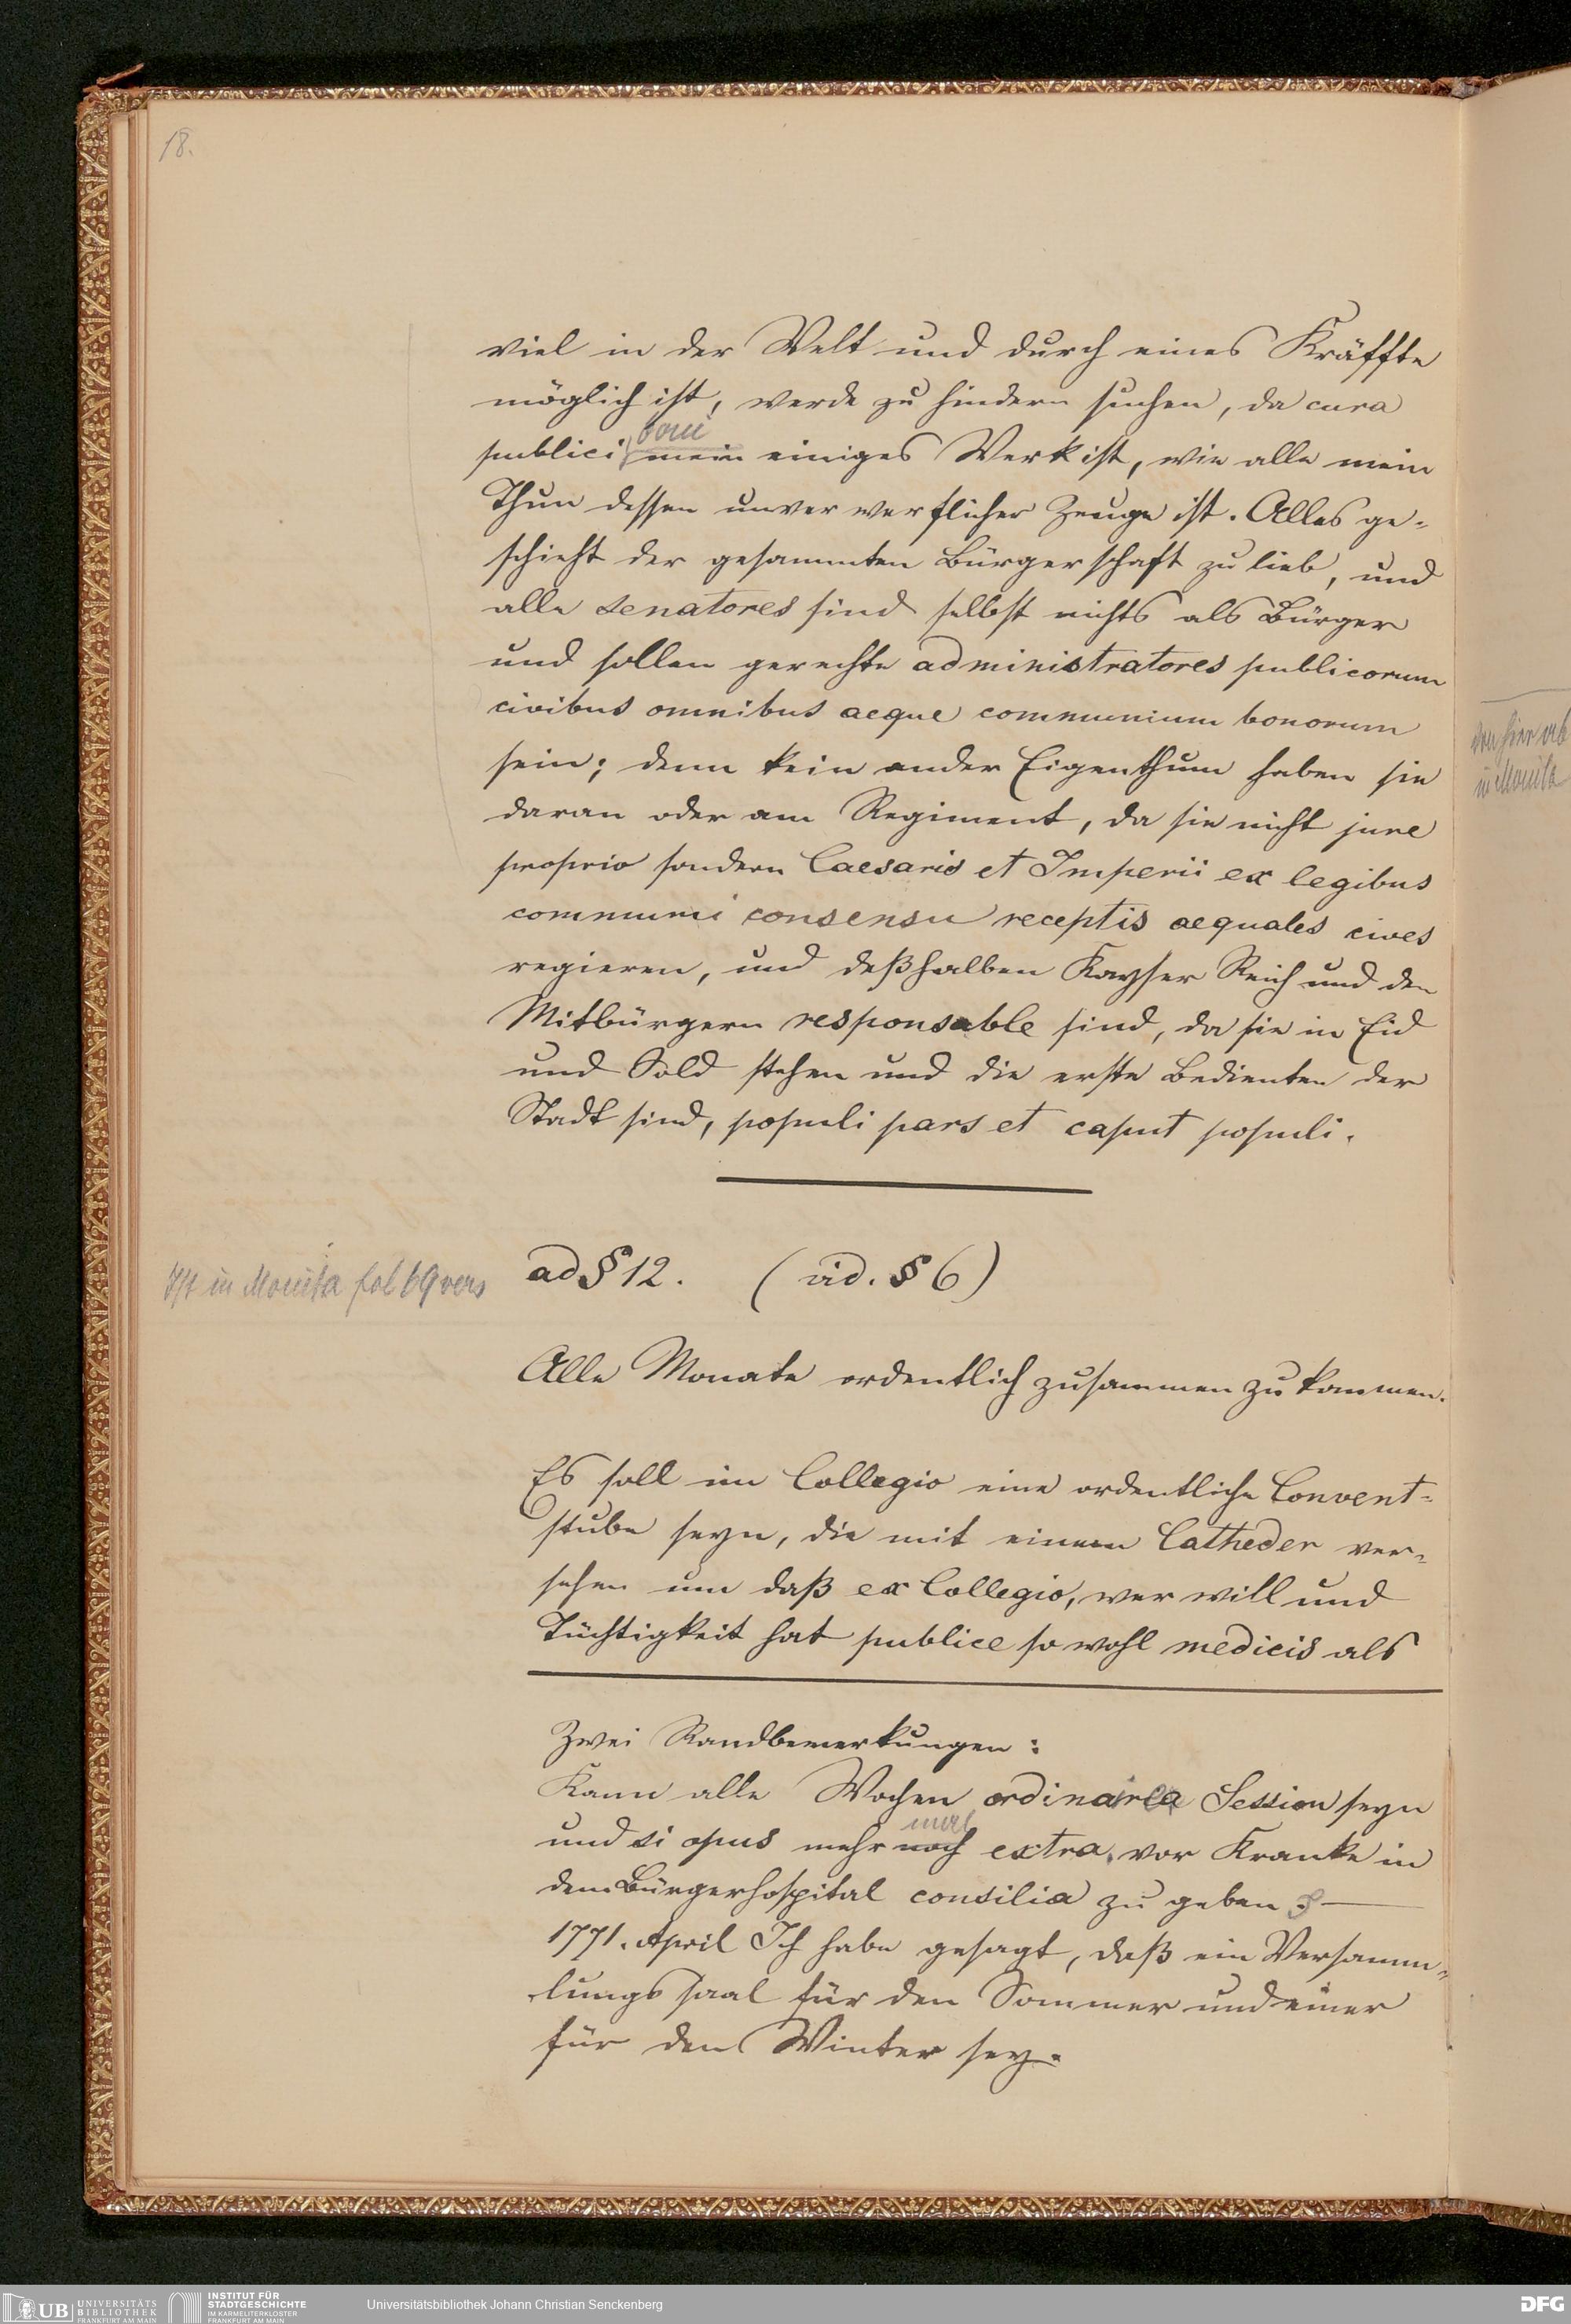 18.
viel in der Welt und durch eines Kräffte
möglich ist, werde zu hindern suchen, da cura
boni
publici mein einiges Werk ist, wie alle mein
Thun dessen unverwerflicher Zeuge ist. Alles ge-
schieht der gesammten Bürgerschaft zu lieb, und
alle Senatores sind selbst nichts als Bürger
und sollen gerechte administratores publicorum
civibus omnibus aeque communium bonorum
sein; denn kein ander Eigenthum haben sie
daran oder am Regiment, da sie nicht jure
proprio sondern Caesaris et Imperii ex legibus
communi consensu receptis aequales cives
regieren, und deßhalben Kayser Reich und den
Mitbürgern responsable sind, da sie in Eid
und Sold stehen und die erste Bedienten der
Stadt sind, populi pars et caput populi.
Ist in Monita fol 69 vers
ad § 12. (vid. § 6)
Alle Monate ordentlich zusammen zu kommen.
Es soll im Collegio eine ordentliche Convent-
stube seyn, die mit einem Catheder ver-
sehen um daß ex Collegio, wer will und
Tüchtigkeit hat publice so wohl medicis als
Zwei Randbemerkungen:
Kann alle Wochen ordinairea Session seyn
mal
und si opus mehr noch extra, vor Kranke in
dem Bürgerhospital consilia zu geben. —
1771. April Ich habe gesagt, daß ein Versamm-
lungssaal für den Sommer und einer
für den Winter sey.
von hier ab
in Monita
UB UNIVERSITÄTS
BIBLIOTHEK
FRANKFURT AM MAIN
INSTITUT FÜR
STADTGESCHICHTE
IM KARMELITERKLOSTER
FRANKFURT AM MAIN
Universitätsbibliothek Johann Christian Senckenberg
DFG